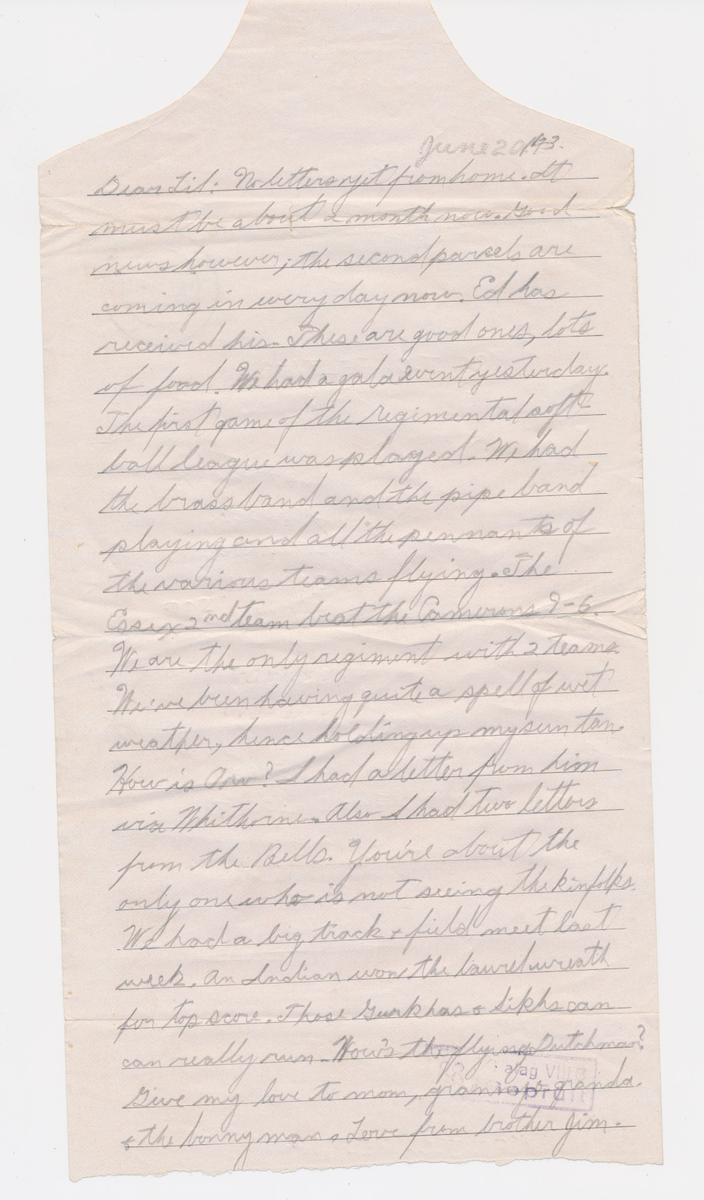 June 20/43.
Dear Lil: No letters yet from home. It
must be about a month now. Good
news however; the second parcels are
coming in every day now. Ed has
received his. These are good ones, lots
of food. We had a gala event yesterday.
The first game of the regimental soft-
ball league was played. We had
the brass band and the pipe band
playing and all the pennants of
the various teams flying. The
Essex 2nd team beat the Camerons 9-6
We are the only regiment with 2 teams.
We've been having quite a spell of wet
weather, hence holding up my sun tan.
How is ? I had a letter from him
via Whithorne. Also I had two letters
from the Bells. You're about the
only one who is not seeing the kinfolks.
We had a big track & field meet last
week. An Indian won the laurel wreath
for top score. Those Gurkhas & Sikhs can
can really run. How's the flying Dutchman?
Give my love to mom, gran, granda.
& the bonny man. Love from brother Jim.
alag VII B